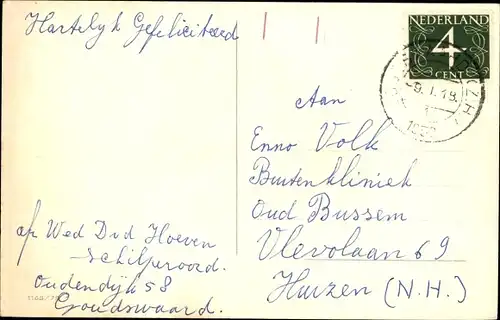 Hartelijk Gefeliciteerd
NEDERLAND
4
CENT
Aan
Enno Volk
Buitenkliniek
Oud Bussem
Vlevolaan 69
Huizen (N.H.)
afz Wed D v d Hoeven
Schilperoord.
Oudendijk 58
Goudswaard.